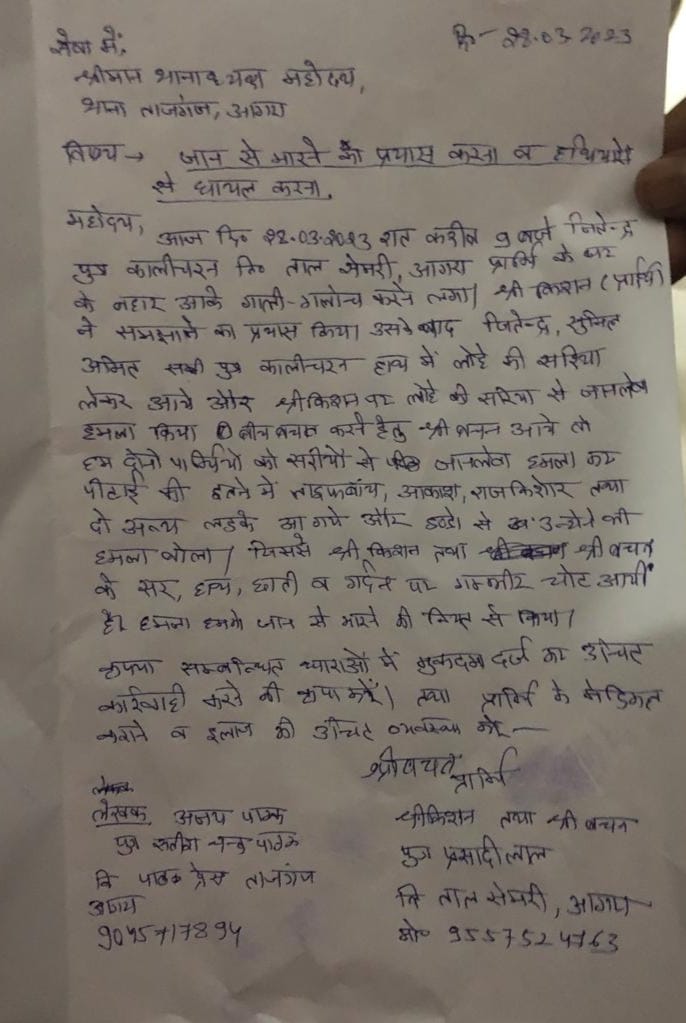 सेवा में,
दि०- 28.03.2023
श्रीमान थानाध्यक्ष महोदय,
थाना ताजगंज, आगरा
विषय → जान से मारने का प्रयास करना व हथियारो
से घायल करना।
महोदय,
आज दि० 28.03.2023 रात करीब 9 बजे जितेन्द्र
पुत्र कालीचरन नि० ताल सेमरी, आगरा प्रार्थि के घर
के बहार आके गाली-गलोच करने लगा। श्री किशन (प्रार्थि)
ने समझाने का प्रयास किया। उसके बाद जितेन्द्र, सुमित
अमित सभी पुत्र कालीचरन हाथ में लोहे की सरिया
लेकर आये और श्रीकिशन पर लोहे की सरिया से जानलेवा
हमला किया बीच बचाव करने हेतु श्री बचन आये तो
हम दोनो प्रार्थियो को सरीयों से जानलेवा हमला कर
पीटाई की इतने में आकाश, राजकिशोर तथा
दो अन्य लडके आ गये और डण्डे से उन्होने भी
हमला बोला। जिससे श्री किशन तथा श्री बचन
के सर, हाथ, छाती व गर्दन पर गम्भीर चोट आयी
है। हमला हमको जान से मारने की नियत से किया।
कृपया सम्बन्धित धाराओं में मुकदमा दर्ज कर उचित
कार्यवाही करने की कृपा करें। तथा प्रार्थि के मेडिकल
कराने व इलाज की उचित व्यवस्था करे—
श्रीबचन
प्रार्थि
लेखक अजय पाठक
पुत्र सतीश चन्द्र पाठक
नि पाठक प्रेस ताजगंज
आगरा
9045717894
श्रीकिशन तथा श्री बचन
पुत्र प्रसादी लाल
नि ताल सेमरी, आगरा
मो० 9557524763